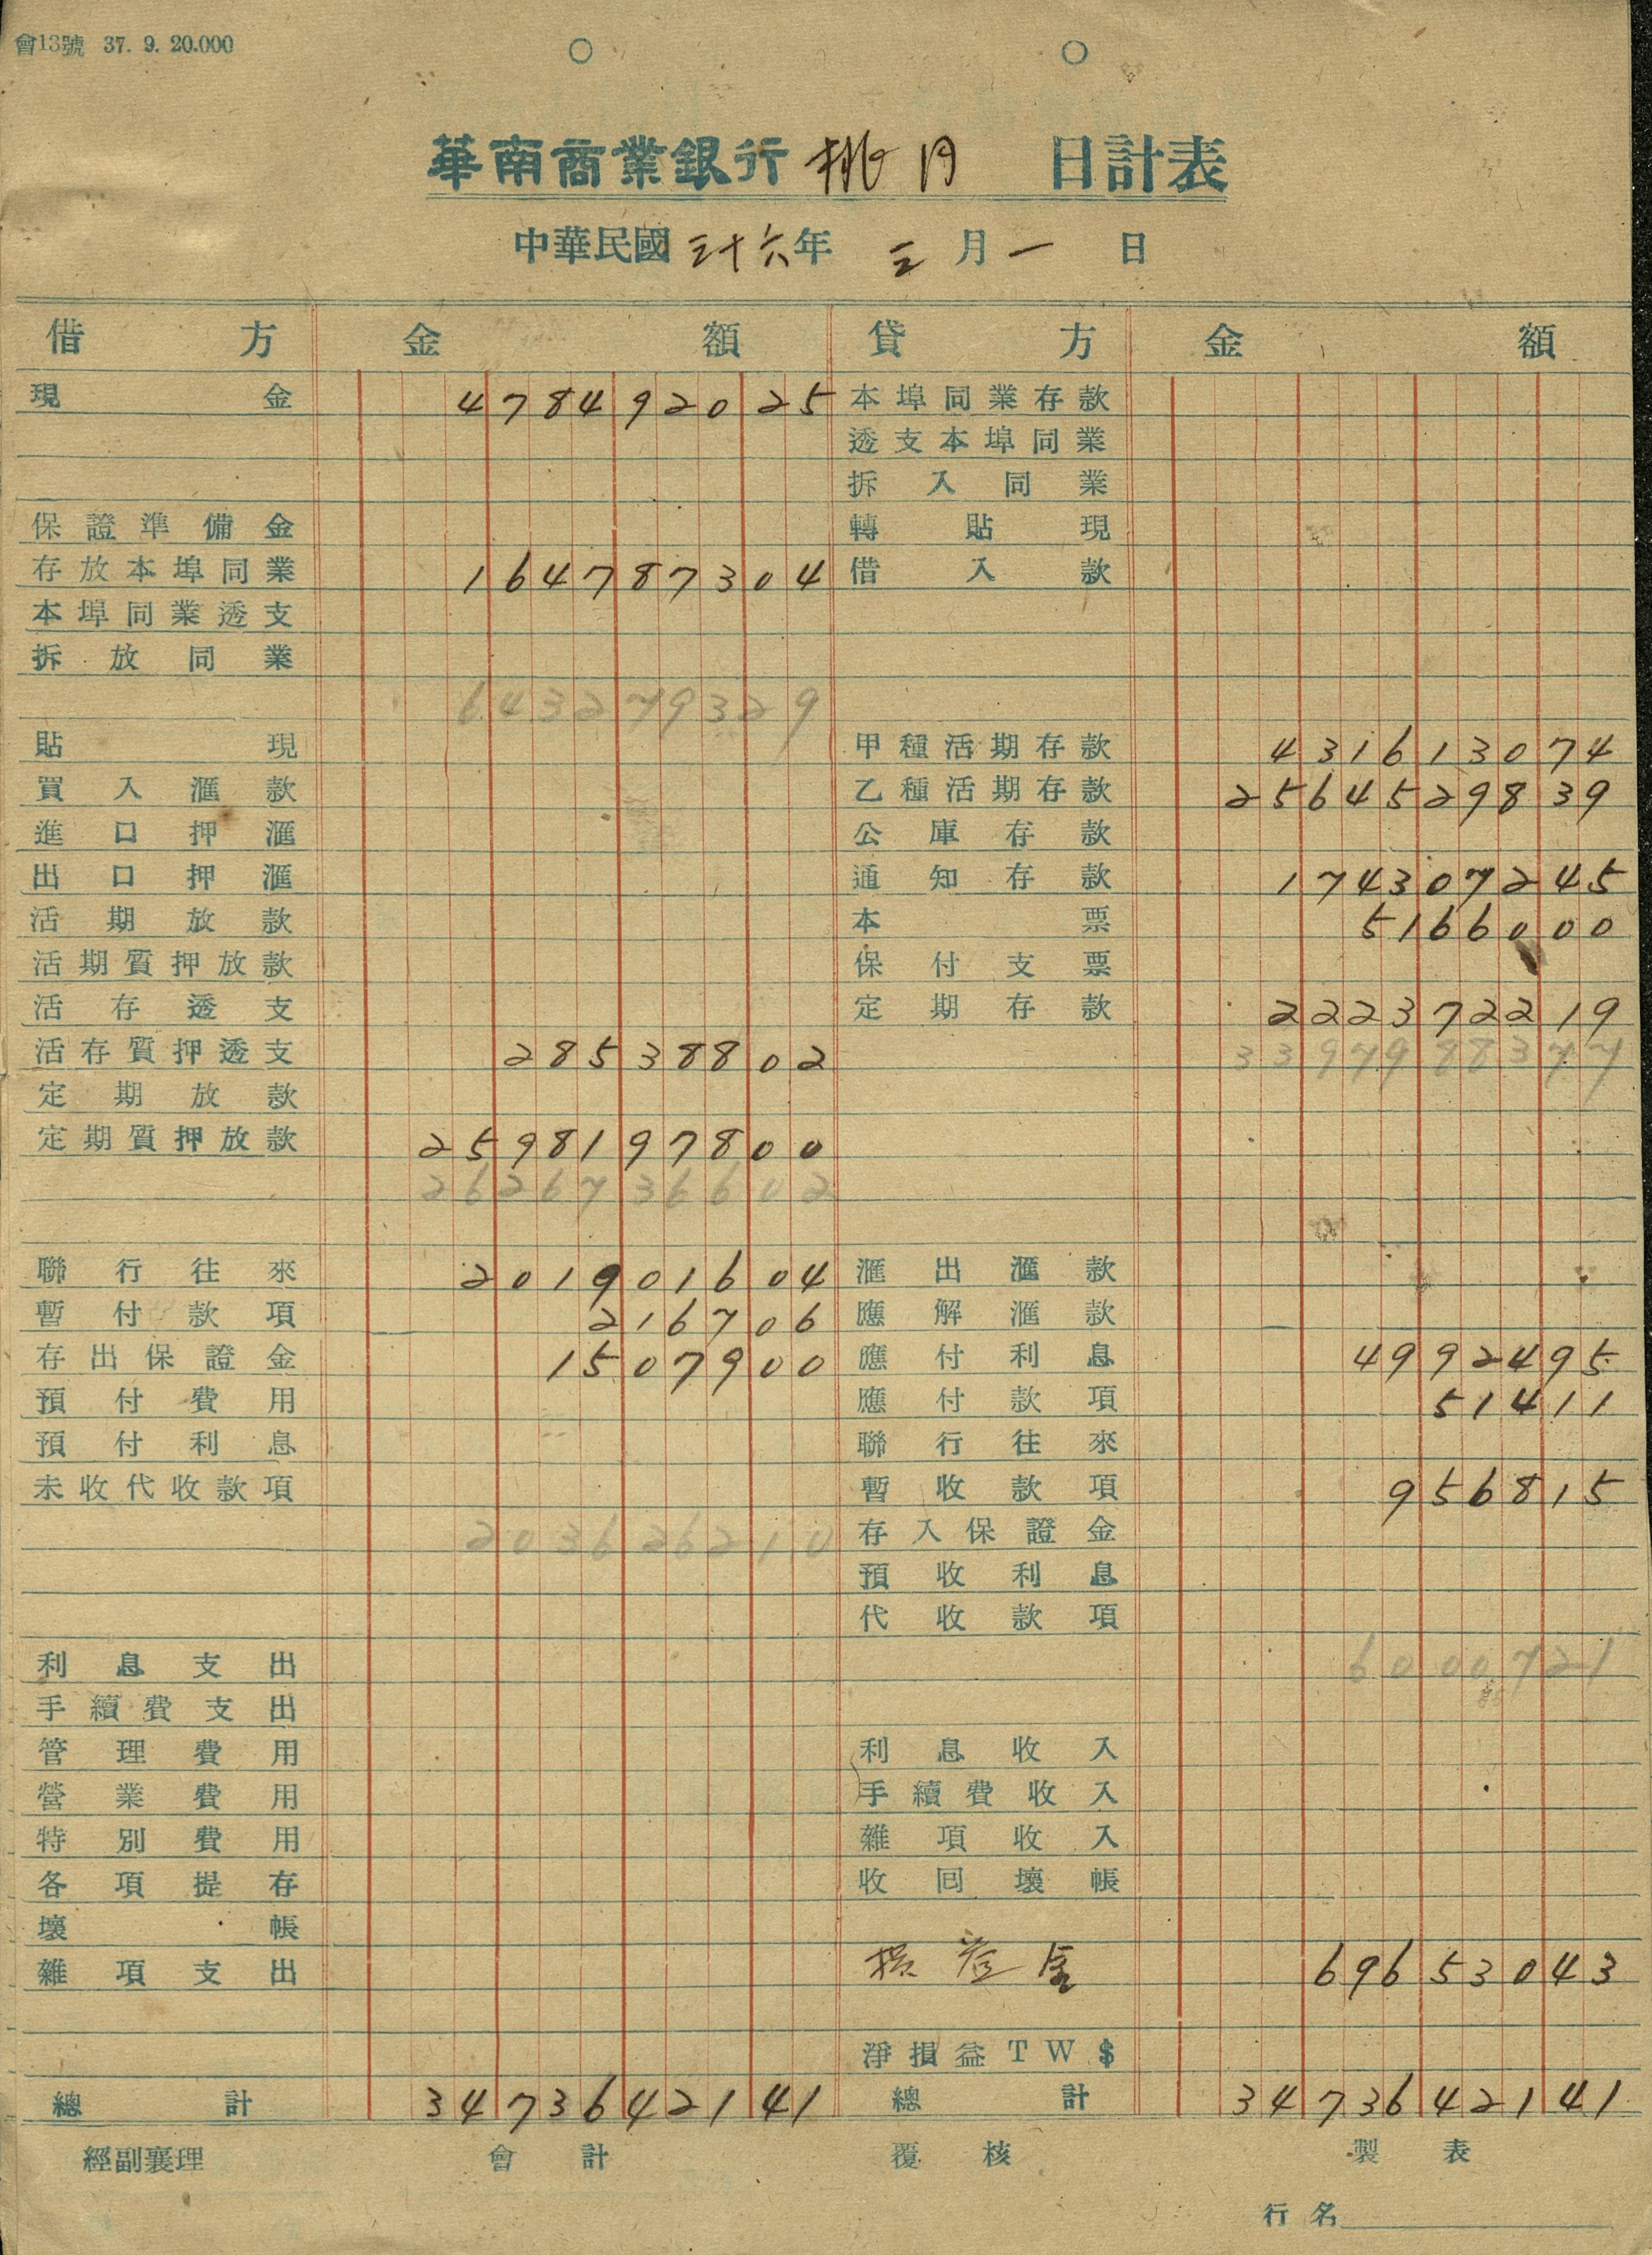 會13號 37. 9. 20.000
華南商業銀行 桃円 日計表
中華民國三十六年 三月一日
借方 金額 貸方 金額
現金 478492025 本埠同業存款
透支本埠同業
拆入同業
保證準備金 轉貼現
存放本埠同業 164787304 借入款
本埠同業透支
拆放同業
643279329
貼現 甲種活期存款 431613074
買入滙款 乙種活期存款 2564529839
進口押滙 公庫存款
出口押滙 通知存款 174307245
活期放款 本票 5166000
活期質押放款 保付支票
活存透支 定期存款 222372219
活存質押透支 28538802 3397988377
定期放款
定期質押放款 2598197800
2626736602
聯行往來 201901604 滙出滙款
暫付款項 216706 應解滙款
存出保證金 1507900 應付利息 4992495
預付費用 應付款項 51411
預付利息 聯行往來
未收代收款項 暫收款項 956815
203626210 存入保證金
預收利息
代收款項
利息支出 6000721
手續費支出
管理費用 利息收入
營業費用 手續費收入
特別費用 雜項收入
各項提存 收回壞帳
壞帳
雜項支出 損益金 69653043
淨損益TW$
總計 3473642141 總計 3473642141
經副襄理 會計 覆核 製表
行名